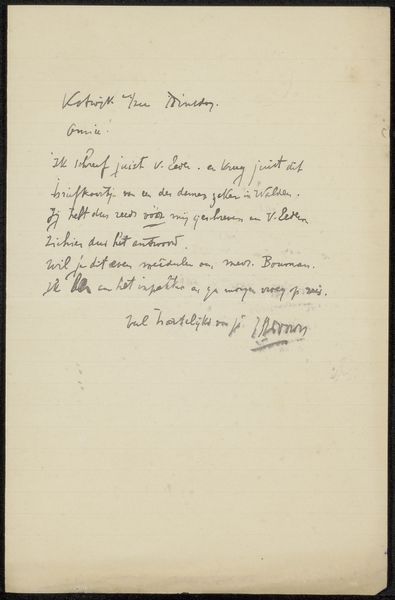 Katwijk a/zee Dinsdag.
Amice!
Ik schreef juist v. Eeden. en kreeg juist dit
briefkaartje van een der dames gekken in Walden.
Jij hebt dus reeds vóór mij geschreven aan V. Eeden
Ziehier dus het antwoord.
Wil je dit even mededeelen aan mevr. Bouman.
Ik ben en het en ga morgen vroeg op reis.
Veel hartelijks van je